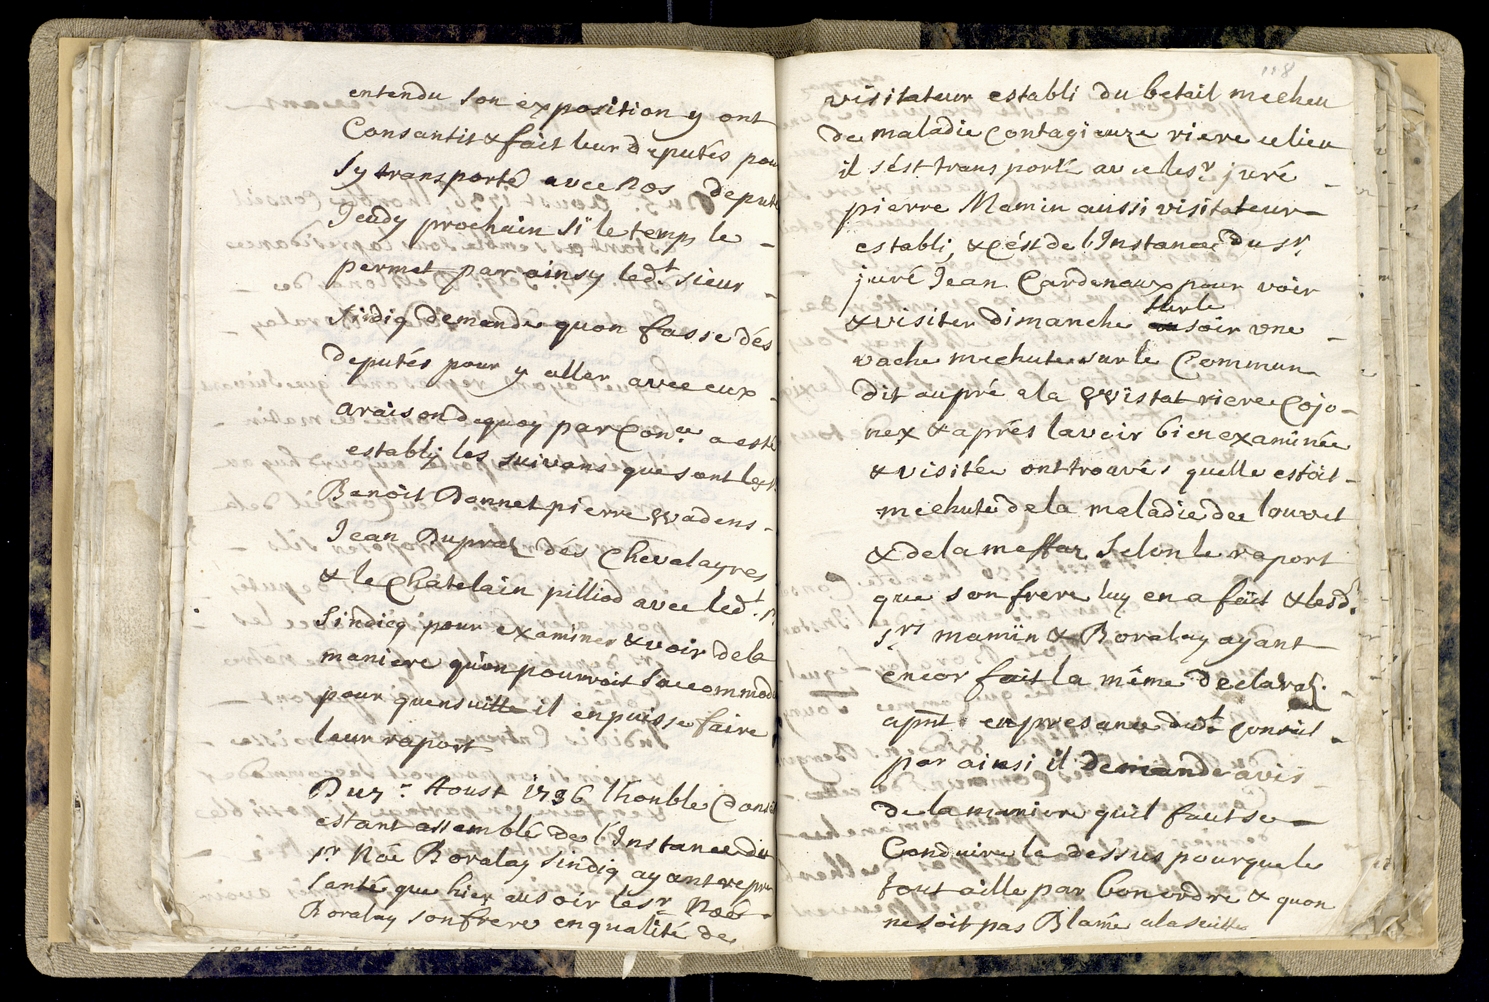 entendu son exposition y ont
Consantit & fait leur deputés pou
sy transporte avec nos deputé
Jeudy prochain si le temps le
permet par ainsy led.t sieur
sindiq demande quon fasse dés
deputés pour y aller avec eux
a raison de quoy par Con.ce a esté
establi les suivans que sont les
Benoit Donnet pierre Wadens
Jean Dupraz dés Chevalayres
& le Châtelain pilliod avec led.t s.r
Sindicq pour examiner & voir de la
maniere quon pourroit saccommod
pour quensuitte il en puisse faire
leur raport
Du 7.e Aoust 1736 lhonble Cons
estant assemblé de l'Instance du
s.r Noé Boralay sindiq ayant repre
santé que hier au soir le s.r Noé
Boralay son frere en qualité de
118
visitateur establi du betail mecheu
de maladie contagieuze riere ce lieu
il sést transporté avec le s.r juré
pierre Mamin aussi visitateur
establi, & cést de l'Instance du s.r
juré Jean Cardenaux pour voir
sur le
& visiter dimanche soir une
vache mechute sur le Commun
dit aupré a la Wistat riere Cojo-
nex & aprés lavoir bien examinée
& visitée ont trouvés quelle estoit
mechute de la maladie de louvet
& de la meffaz selon le raport
que son frere luy en a fait & lesd.
s.rs mamin & Boralay ayant
encor fait la même declarat.
apnt. en presance dud.t conseil
par ainsi il demande avis
de la maniere quil faut se
Conduire la dessus pour que le
tout aille par bon ordre & quon
ne soit pas Blamé a la suitte